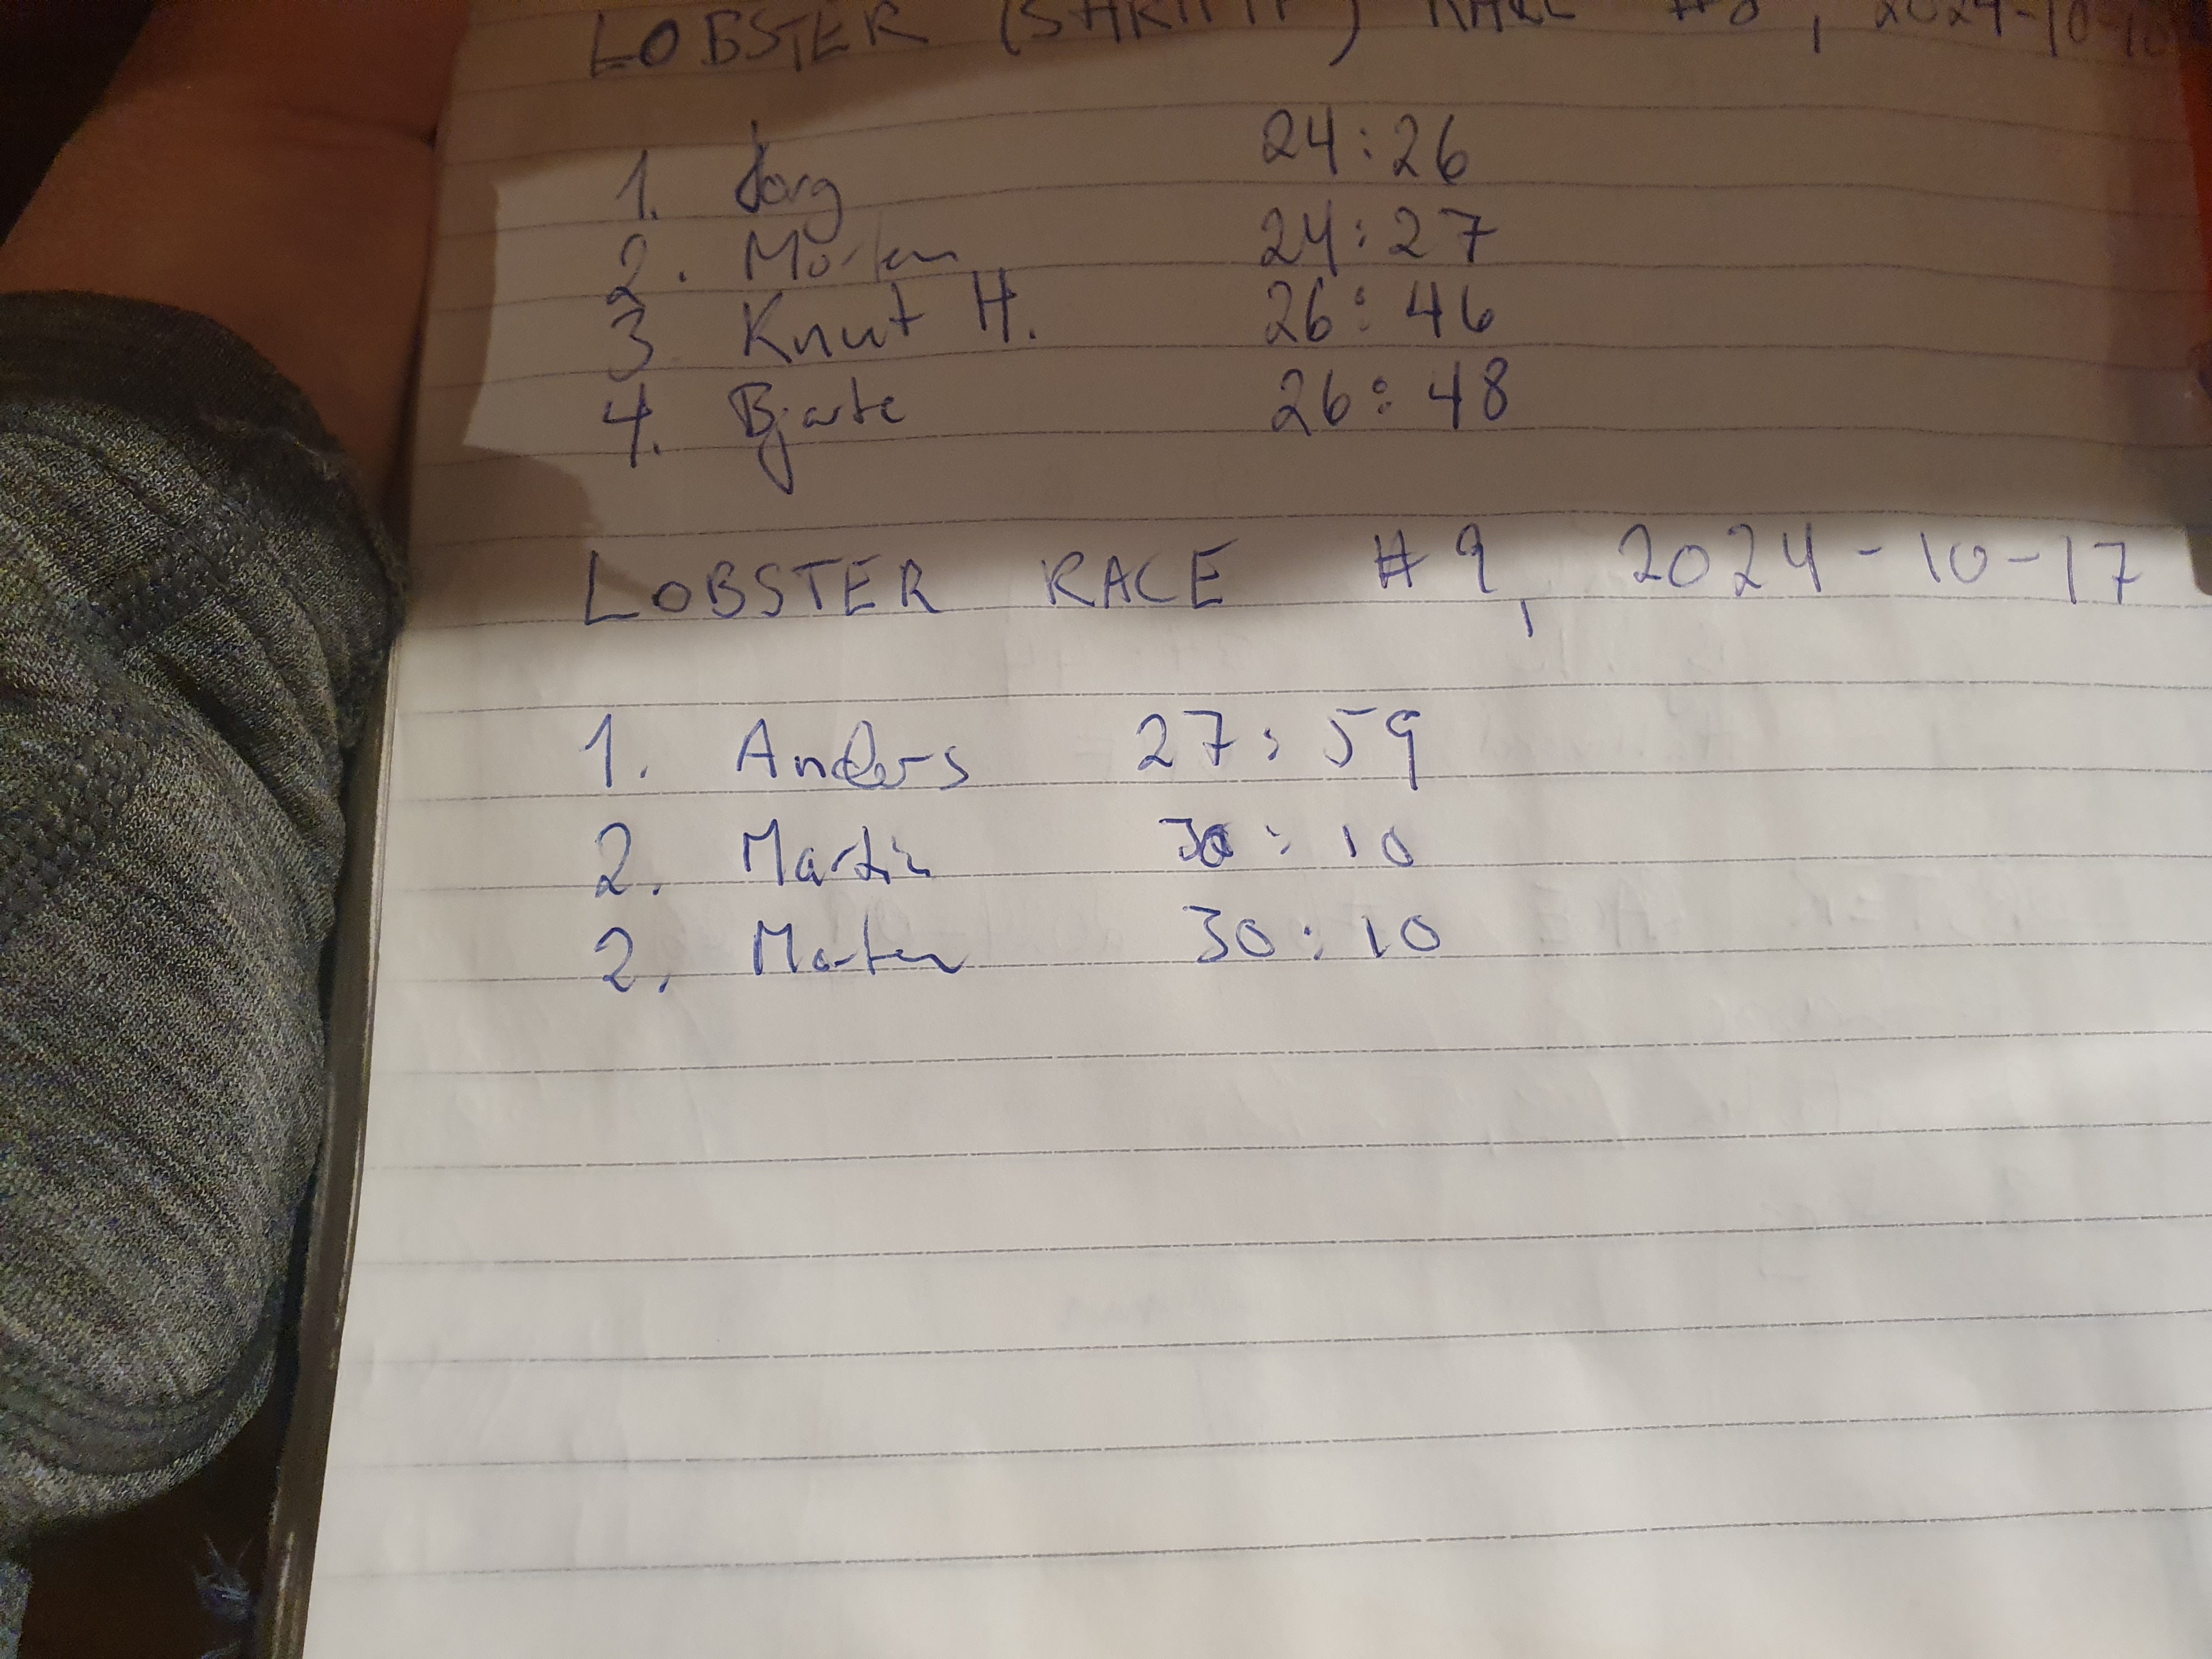 LOBSTER (SHRIMP) RACE #8, 2024-10-10
1. Jørg 24:26
2. Morten 24:27
3 Knut H. 26:46
4. Bjarte 26:48
LOBSTER RACE #9, 2024-10-17
1. Anders 27:59
2. Martin 30:10
2. Morten 30:10